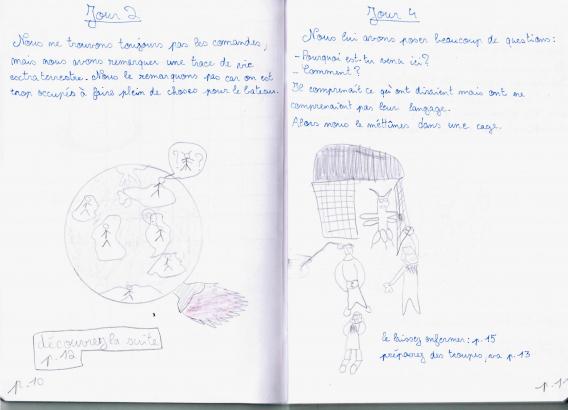 Jour 2
Nous ne trouvons toujours pas les comandes,
mais nous avons remarquer une trace de vie
extraterrestre. Nous le remarquons pas car on est
trop occupés à faire plein de choses pour le bateau.
découvrez la suite
p.12
p.10
Jour 4
Nous lui avons poser beaucoup de questions:
- Pourquoi est-tu venu ici?
- Comment?
Il comprenait ce qu'ont disaient mais ont ne
comprenaient pas leur langage.
Alors nous le mêttimes dans une cage.
le laissez enfermer: p.15
préparez des troupes, va p.13
p.11